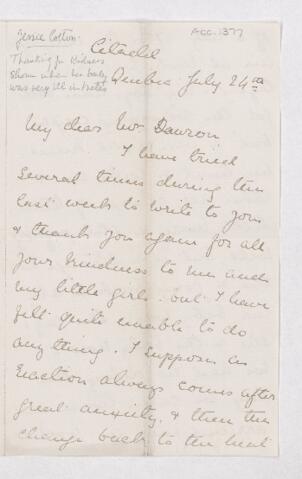 Jessie Cotton.
Thanking for kindness
Shown when her baby
was very ill in hotel
ACC. 1377
Citadel
Quebec July 24th
My dear Mr Dawson
I have tried
several times during the
last week to write to you
& thank you again for all
your kindness to me and
my little girls. but I have
felt quite unable to do
anything. I suppose a
reaction always comes after
great anxiety, & then the
change back to the heat